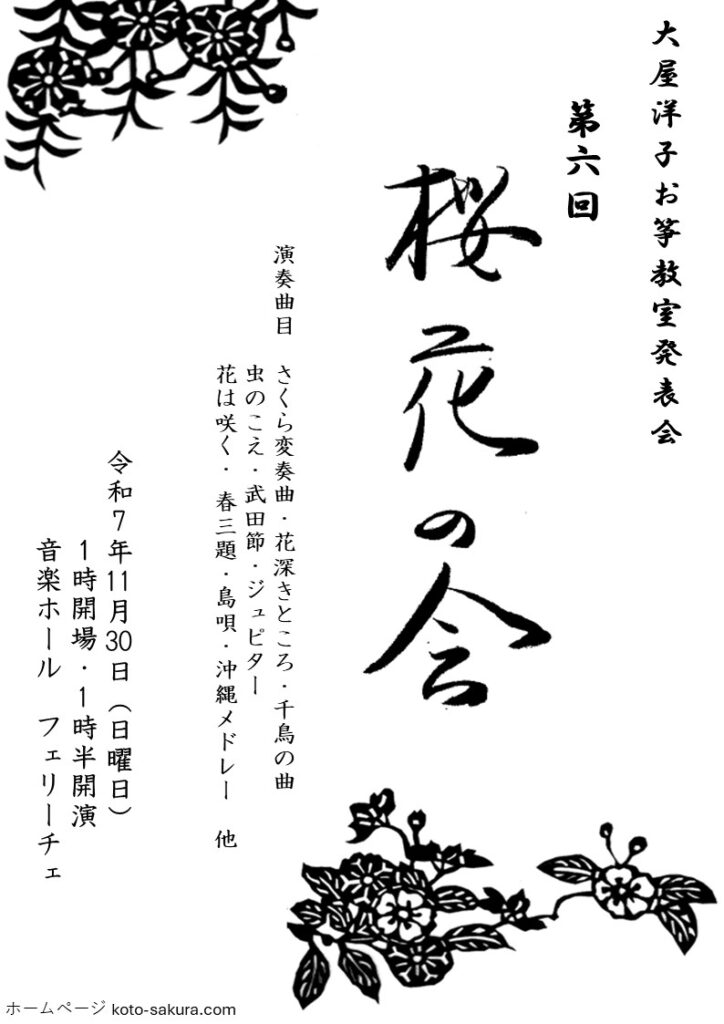 大屋洋子お箏教室発表会
第六回
桜花の会
演奏曲目 さくら変奏曲・花深きところ・千鳥の曲
虫のこえ・武田節・ジュピター
花は咲く・春三題・島唄・沖縄メドレー 他
令和7年11月30日(日曜日)
1時開場・1時半開演
音楽ホール フェリーチェ
ホームページ koto-sakura.com